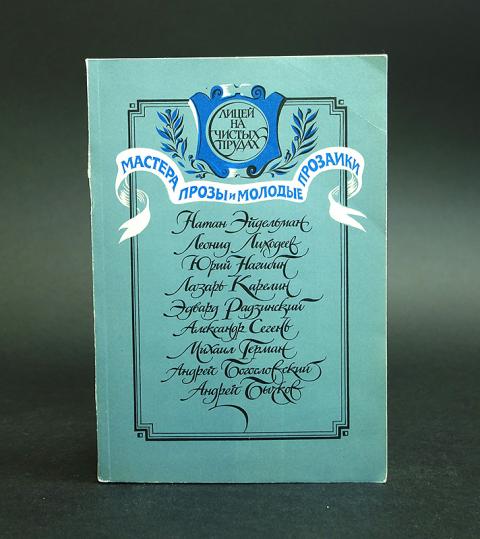 ЛИЦЕЙ
НА
ЧИСТЫХ
ПРУДАХ
МАСТЕРА ПРОЗЫ И МОЛОДЫЕ ПРОЗАИКИ
Натан Эйдельман
Леонид Лиходеев
Юрий Нагибин
Лазарь Карелин
Эдвард Радзинский
Александр Сегень
Михаил Герман
Андрей Богословский
Андрей Бычков